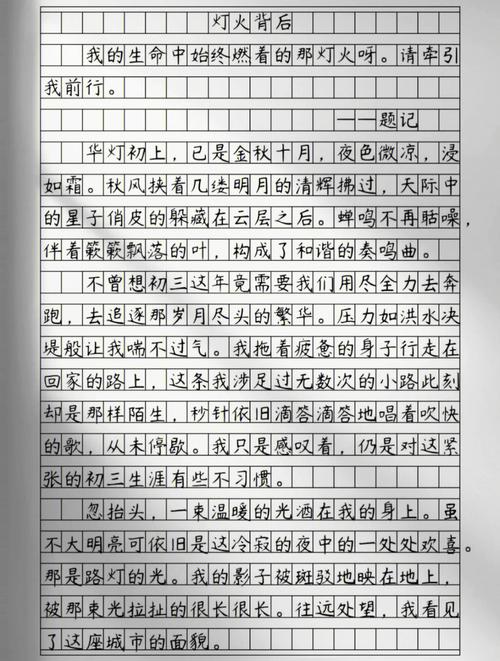 灯火背后
我的生命中始终燃着的那灯火呀。请牵引
我前行。
——题记
华灯初上，已是金秋十月，夜色微凉，浸
如霜。秋风挟着几缕明月的清辉拂过，天际中
的星子俏皮的躲藏在云层之后。蝉鸣不再聒噪，
伴着簌簌飘落的叶，构成了和谐的奏鸣曲。
不曾想初三这年竟需要我们用尽全力去奔
跑，去追逐那岁月尽头的繁华。压力如洪水决
堤般让我喘不过气。我拖着疲惫的身子行走在
回家的路上，这条我涉足过无数次的小路此刻
却是那样陌生，秒针依旧滴答滴答地唱着欢快
的歌，从未停歇。我只是感叹着，仍是对这紧
张的初三生涯有些不习惯。
忽抬头，一束温暖的光洒在我的身上。虽
不大明亮可依旧是这冷寂的夜中的一处处欢喜。
那是路灯的光。我的影子被斑驳地映在地上，
被那束光拉扯的很长很长。往远处望，我看见
了这座城市的面貌。